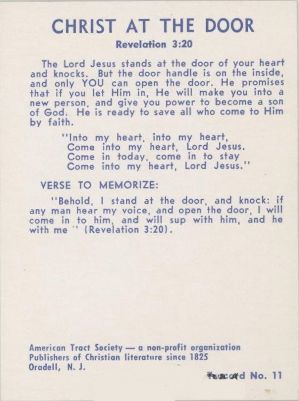 CHRIST AT THE DOOR
Revelation 3:20
The Lord Jesus stands at the door of your heart
and knocks. But the door handle is on the inside,
and only YOU can open the door. He promises
that if you let Him in, He will make you into a
new person, and give you power to become a son
of God. He is ready to save all who come to Him
by faith.
"Into my heart, into my heart,
Come into my heart, Lord Jesus.
Come in today, come in to stay
Come into my heart, Lord Jesus."
VERSE TO MEMORIZE:
"Behold, I stand at the door, and knock: if
any man hear my voice, and open the door, I will
come in to him, and will sup with him, and he
with me " (Revelation 3:20).
American Tract Society — a non-profit organization
Publishers of Christian literature since 1825
Oradell, N. J.
No. 11